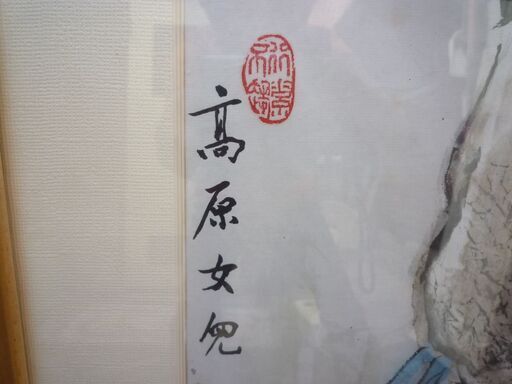 高原女兒